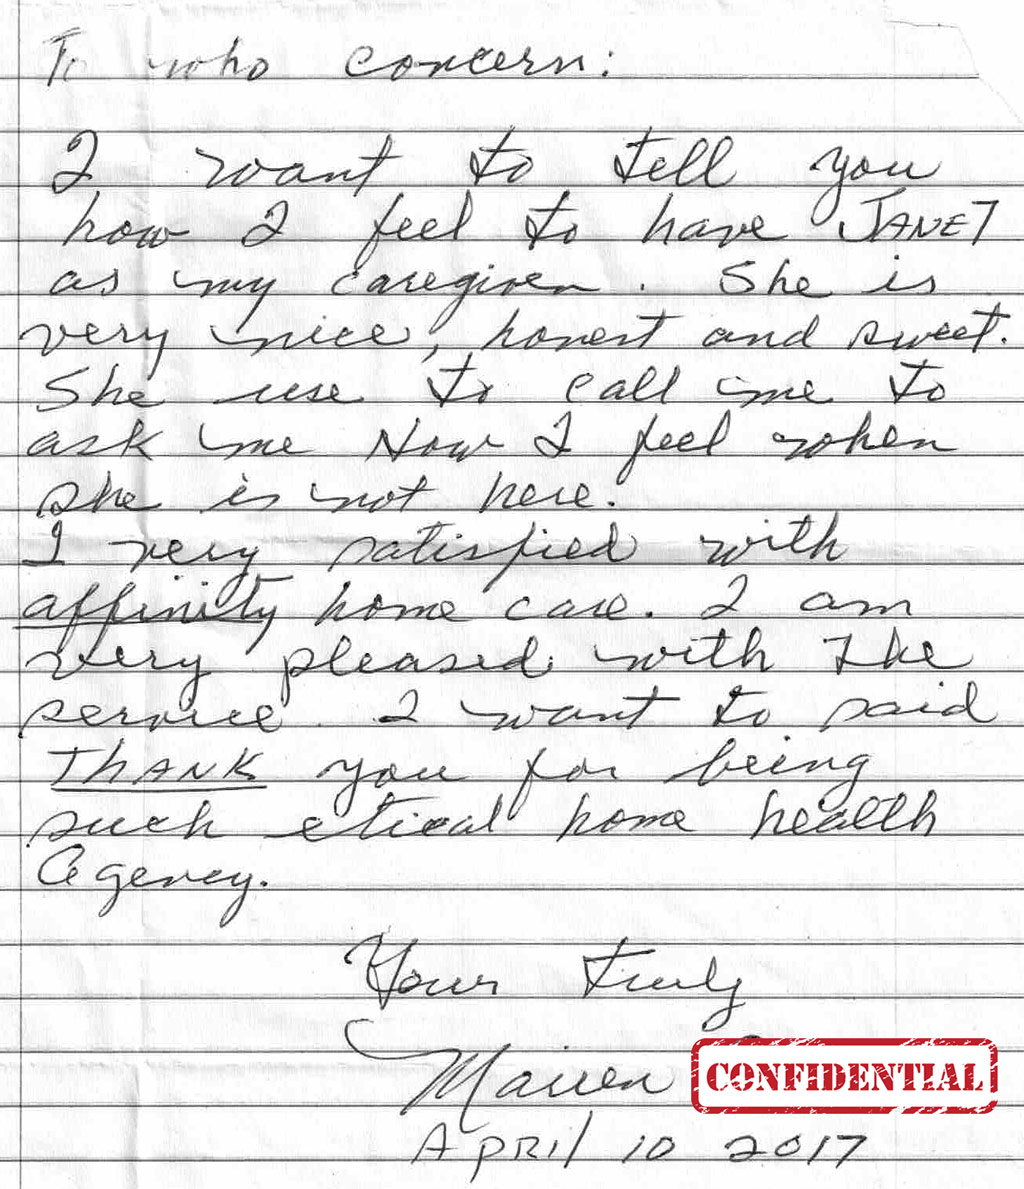 To who concern:
I want to tell you
how I feel to have JANET
as my caregiver. She is
very nice, honest and sweet.
She use to call me to
ask me How I feel when
she is not here.
I very satisfied with
affinity home care. I am
very pleased with the
service. I want to said
THANK you for being
such etical home health
Agency.
Your truly
CONFIDENTIAL
APRil 10 2017